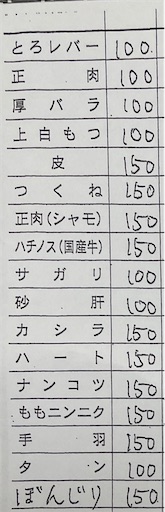 とろレバー 100
正肉 100
厚バラ 100
上白もつ 100
皮 150
つくね 150
正肉(シャモ) 150
ハチノス(国産牛) 150
サガリ 100
砂肝 100
カシラ 150
ハート 150
ナンコツ 150
ももニンニク 150
手羽 150
タン 100
ぼんじり 150